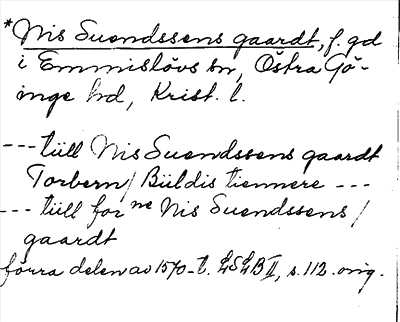 *Nis Suendssens gaardt, f. gd
i Emmislövs sn, Östra Gö-
inge hd, Krist. l.
--- tiill Nis Suendssens gaardt
Torbern / Büldis tiennere ---
--- tiill for ne Nis Suendssens /
gaardt
förra delen av 1570-t. LSLB II, s. 112. orig.